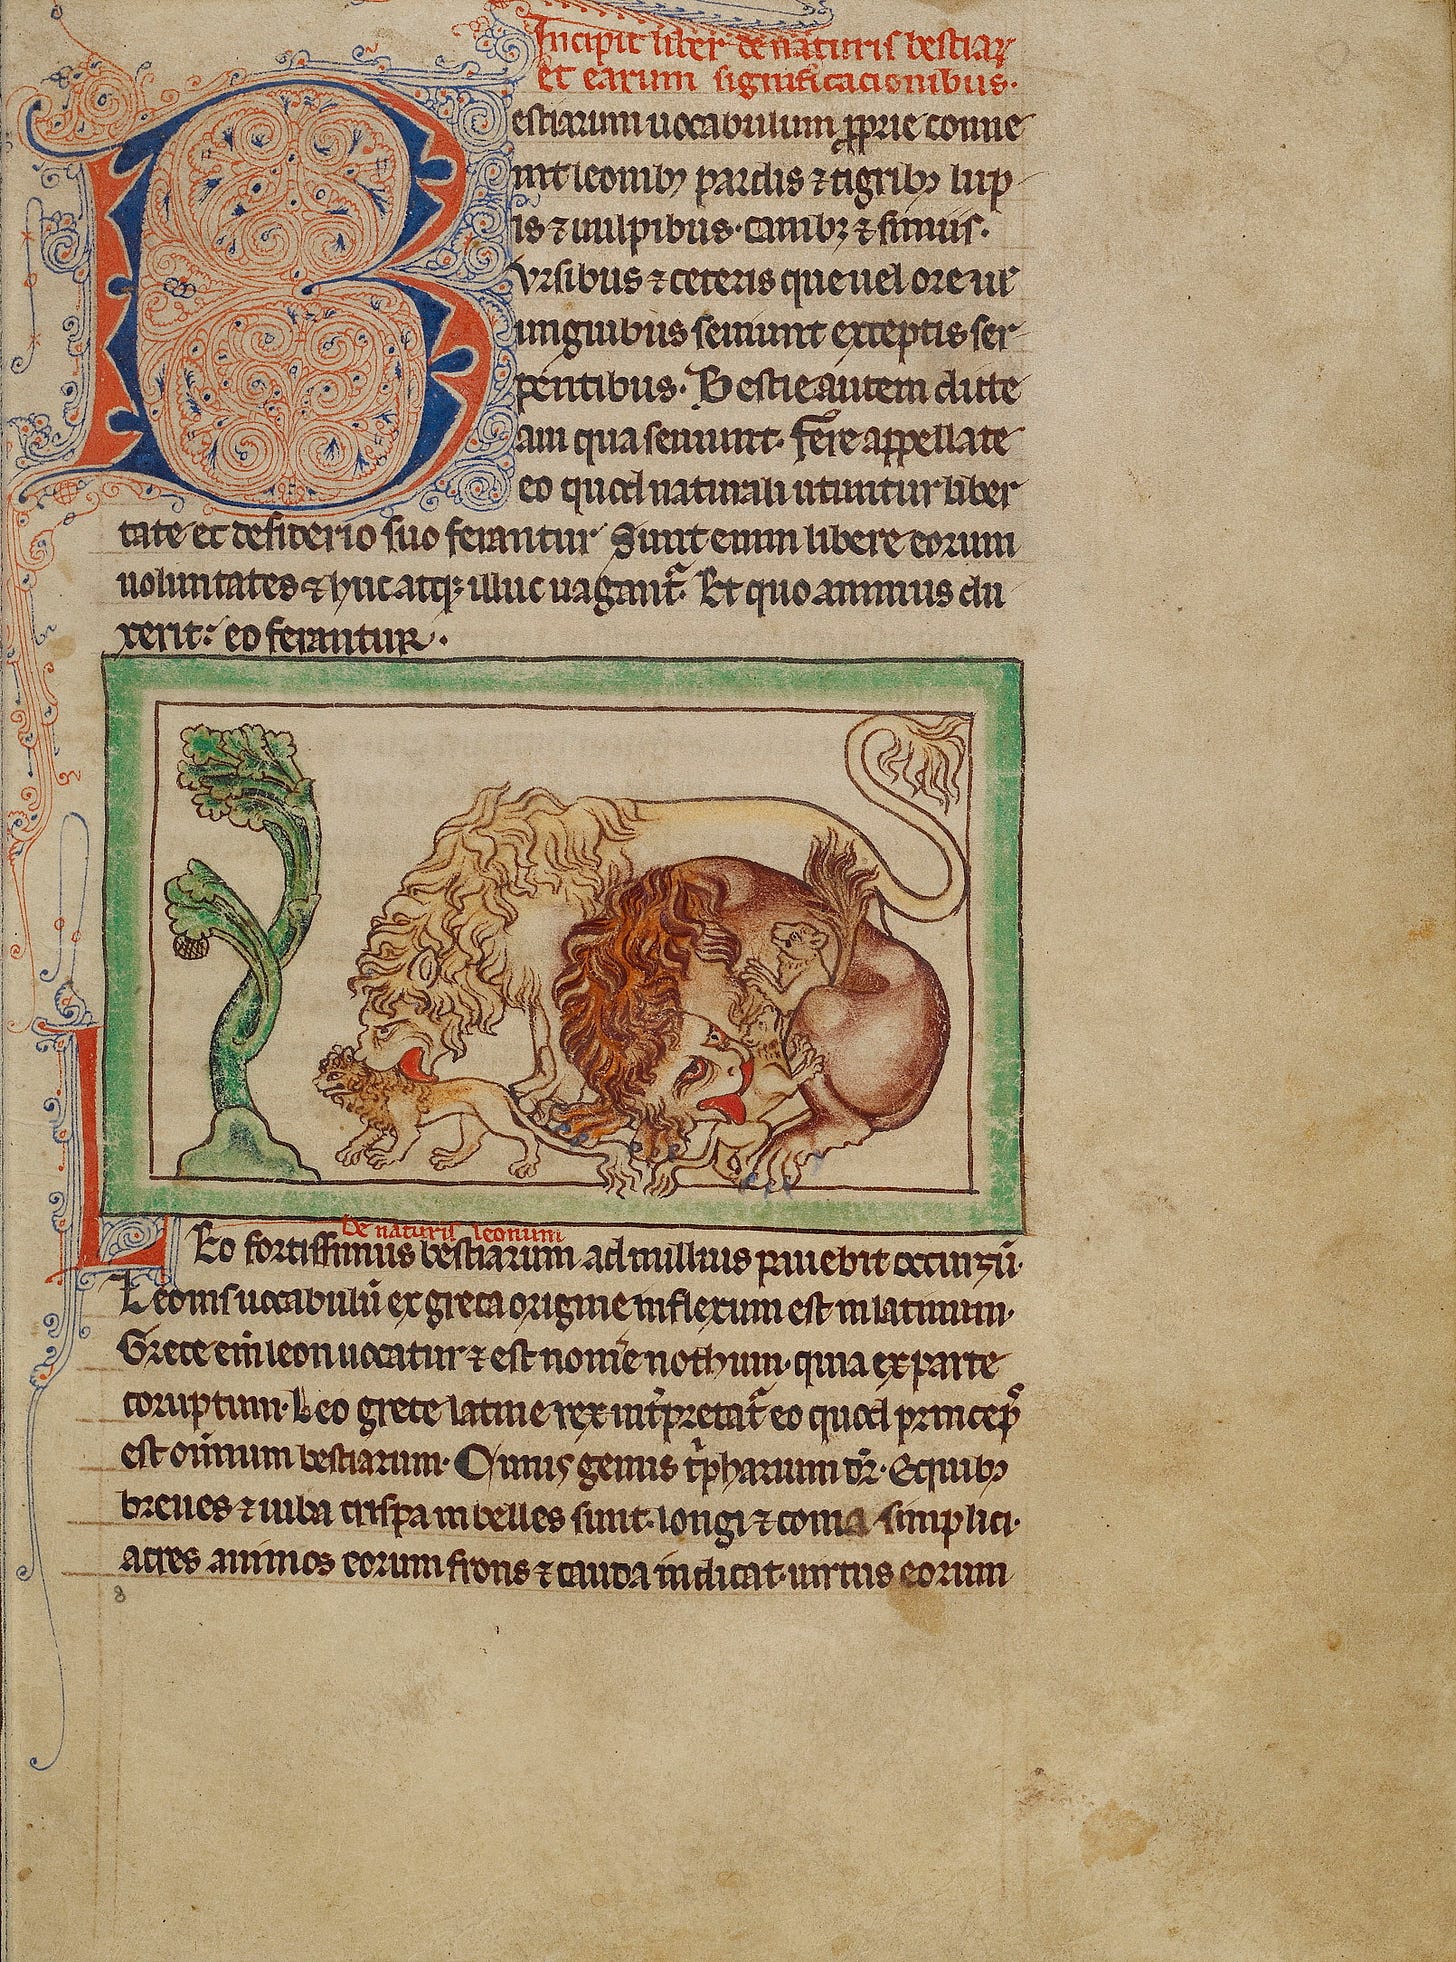 Incipit liber de naturis bestiaꝝ
et earum significacionibus·
Bestiarum uocabulum ꝓprie conue
nit leonibꝫ pardis ⁊ tigribꝫ lup
is ⁊ uulpibus· canibꝫ ⁊ simiis·
Vrsibus ⁊ ceteris que uel ore ul̃
unguibus seuiunt exceptis ser
pentibus· Bestie autem dicte
a ui qua seuiunt· fere appellate
eo quod naturali utuntur liber
tate et desiderio suo ferantur Sunt enim libere eorum
uoluntates ⁊ huc atqꝫ illuc uagant᷑· Et quo animus du
xerit: eo ferantur·
De naturis leonum
LEo fortissimus bestiarum ad nullius pauebit occursū·
Leonis uocabulū ex greca origine inflexum est in latinum·
Grece eni᷑ leon uocatur ⁊ est nomen nothum· quia ex parte
coruptum· Leo grece latine rex int᷑pretat᷑ eo quod princeps
est omnium bestiarum· Cuius genus tͥpharium dr̃· E quibꝫ
breues ⁊ iuba crispa inbelles sunt· longi ⁊ coma simplici·
acres animos eorum frons ⁊ cauda indicat· uirtus eorum
8